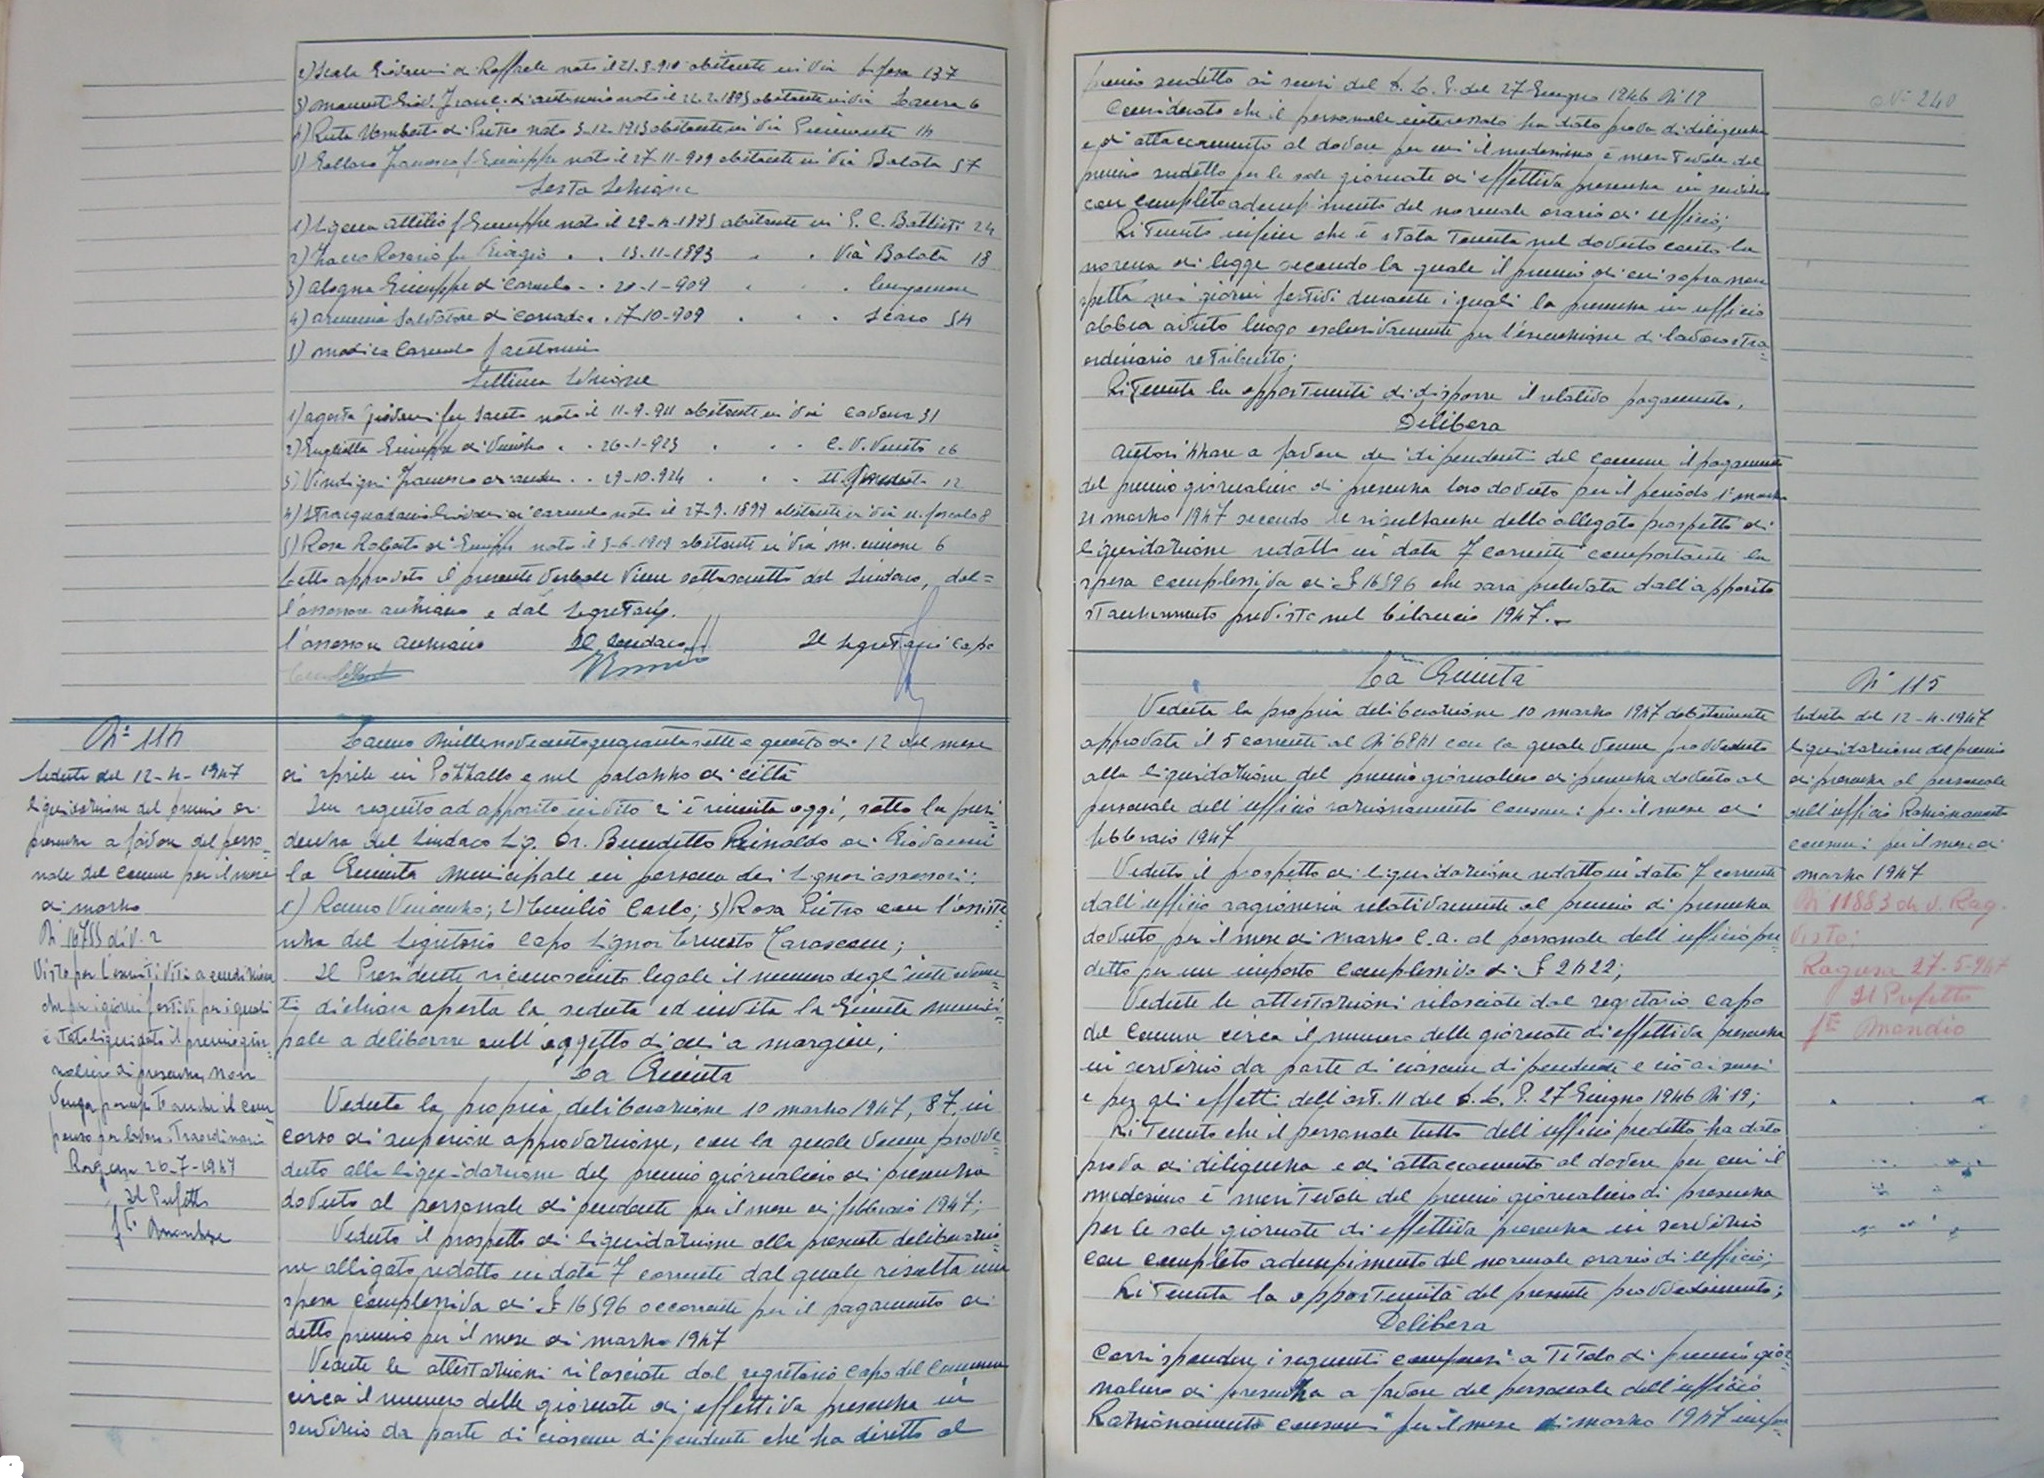 2) Scala Giovanni di Raffaele nato il 21.3.910 abitante in Via 137
3) nato il 22.2.1893 abitante in Via Cavour 6
4) Ruta Umberto di Pietro nato 3-12-1913 abitante in Via Piemonte 14
5) Gallaro Francesco f Giuseppe nato il 27-11-909 abitante in Via Balata 57
Sesta Sezione
1) Ligena Attilio f Giuseppe nato il 29-4-1893 abitante in P. C. Battisti 24
2) Zacco Rosario fu Biagio . . 13-11-1893 . . Via Balata 18
3) Alogna Giuseppe di Carmelo . . 20-1-909 . .
4) Armenia Salvatore di Corrado . . 17-10-909 . . . 54
5) Modica Carmelo f Antonio
Settima Sezione
1) Agosta Giovanni fu Santo nato il 11-9-911 abitante in Via Cavour 31
2) Giuseppe di Vincenzo . . 26-1-923 . . . C. V. Veneto 26
3) Vindigni Francesco . . 29-10.924 . . . 12
4) Stracquadanio Giovanni di Carmelo nato il 27-9.1899 abitante in Via U. Foscolo 8
5) Rosa Roberto di Giuseppe nato il 3-6-1919 abitante in Via 6
Letto approvato il presente verbale viene sottoscritto dal Sindaco, dal=
l'assessore anziano e dal Segretario.
l'assessore anziano Il Sindaco Il Segretario Capo
N° 114
Seduta del 12-4-1947
liquidazione del premio di
presenza a favore del perso=
nale del Comune per il mese
di marzo
N° 16755 div. 2
Visto per l'esecutività a condizione
che per i giorni festivi per i quali
è stato liquidato il premio gior=
naliero di presenza, non
venga percepito anche il com
penso per lavoro straordinario
Ragusa 26-7-1947
Il Prefetto
f.to
L'anno Millenovecentoquarantasette e questo dì 12 del mese
di aprile in Pozzallo e nel palazzo di città
In seguito ad apposito invito si è riunita oggi, sotto la presi=
denza del Sindaco Sig. Dr. Benedetto Rinaldo di Giovanni
la Giunta Municipale in persona dei Signori assessori:
1) Vincenzo; 2) Carlo; 3) Rosa Pietro con l'assiste
nza del Segretario Capo Signor Ernesto Tarascone;
Il Presidente riconosciuto legale il numero degl'intervenu=
ti dichiara aperta la seduta ed invita la Giunta munici=
pale a deliberare sull'oggetto di cui a margine;
La Giunta
Veduta la propria deliberazione 10 marzo 1947, 87 in
corso di superiore approvazione, con la quale venne provve=
duto alla liquidazione del premio giornaliero di presenza
dovuto al personale dipendente per il mese di febbraio 1947;
Veduto il prospetto di liquidazione alla presente deliberazio=
ne alligato, redatto in data 7 corrente dal quale risulta una
spesa complessiva di £ 16596 occorrente per il pagamento di
detto premio per il mese di marzo 1947
Vedute le attestazioni rilasciate dal segretario capo del Comune
circa il numero delle giornate di effettiva presenza in
servizio da parte di ciascun dipendente che ha diretto al
N° 240
premio suddetto ai sensi del D. L. P. del 27 Giugno 1946 N. 19
Considerato che il personale interessato ha dato prova di diligenza
e di attaccamento al dovere per cui il medesimo è meritevole del
premio suddetto per le sole giornate di effettiva presenza in servizio
con completo adempimento del normale orario di ufficio;
Ritenuto infine che è stata tenuta nel dovuto conto la
norma di legge secondo la quale il premio di cui sopra non
spetta nei giorni festivi durante i quali la presenza in ufficio
abbia avuto luogo esclusivamente per l'esecuzione di lavoro stra=
ordinario retribuito;
Ritenuta la opportunità di disporre il relativo pagamento,
Delibera
Autorizzare a favore dei dipendenti del comune il pagamento
del premio giornaliero di presenza loro dovuto per il periodo 1° marzo
31 marzo 1947 secondo le risultanze dello allegato prospetto di
liquidazione redatto in data 7 corrente comportante la
spesa complessiva di £ 16596 che sarà prelevata dall'apposito
stanziamento previsto nel bilancio 1947.
La Giunta
Veduta la propria deliberazione 10 marzo 1947 debitamente
approvata il 5 corrente al N° 6841 con la quale venne provveduto
alla liquidazione del premio giornaliero di presenza dovuto al
personale dell'ufficio razionamento consumi per il mese di
febbraio 1947
Veduto il prospetto di liquidazione redatto in data 7 corrente
dall'ufficio ragioneria relativamente al premio di presenza
dovuto per il mese di marzo c.a. al personale dell'ufficio pre=
detto per un importo complessivo di £ 2422;
Vedute le attestazioni rilasciate dal segretario capo
del Comune circa il numero delle giornate di effettiva presenza
in servizio da parte di ciascun dipendente e ciò ai sensi
e per gli effetti dell'art. 11 del D. L. P. 27 Giugno 1946 N° 19;
Ritenuto che il personale tutto dell'ufficio predetto ha dato
prova di diligenza e di attaccamento al dovere per cui il
medesimo è meritevole del premio giornaliero di presenza
per le sole giornate di effettiva presenza in servizio
con completo adempimento del normale orario di ufficio;
Ritenuta la opportunità del presente provvedimento;
Delibera
Corrispondere i seguenti compensi a titolo di premio gior=
naliero di presenza a favore del personale dell'ufficio
Razionamento consumi per il mese di marzo 1947
N° 115
Seduta del 12-4-1947
liquidazione del premio
di presenza al personale
dell'ufficio Razionamento
consumi per il mese di
marzo 1947
N° 11883 div. Rag.
Visto:
Ragusa 27-5-947
Il Prefetto
f.to Mondio